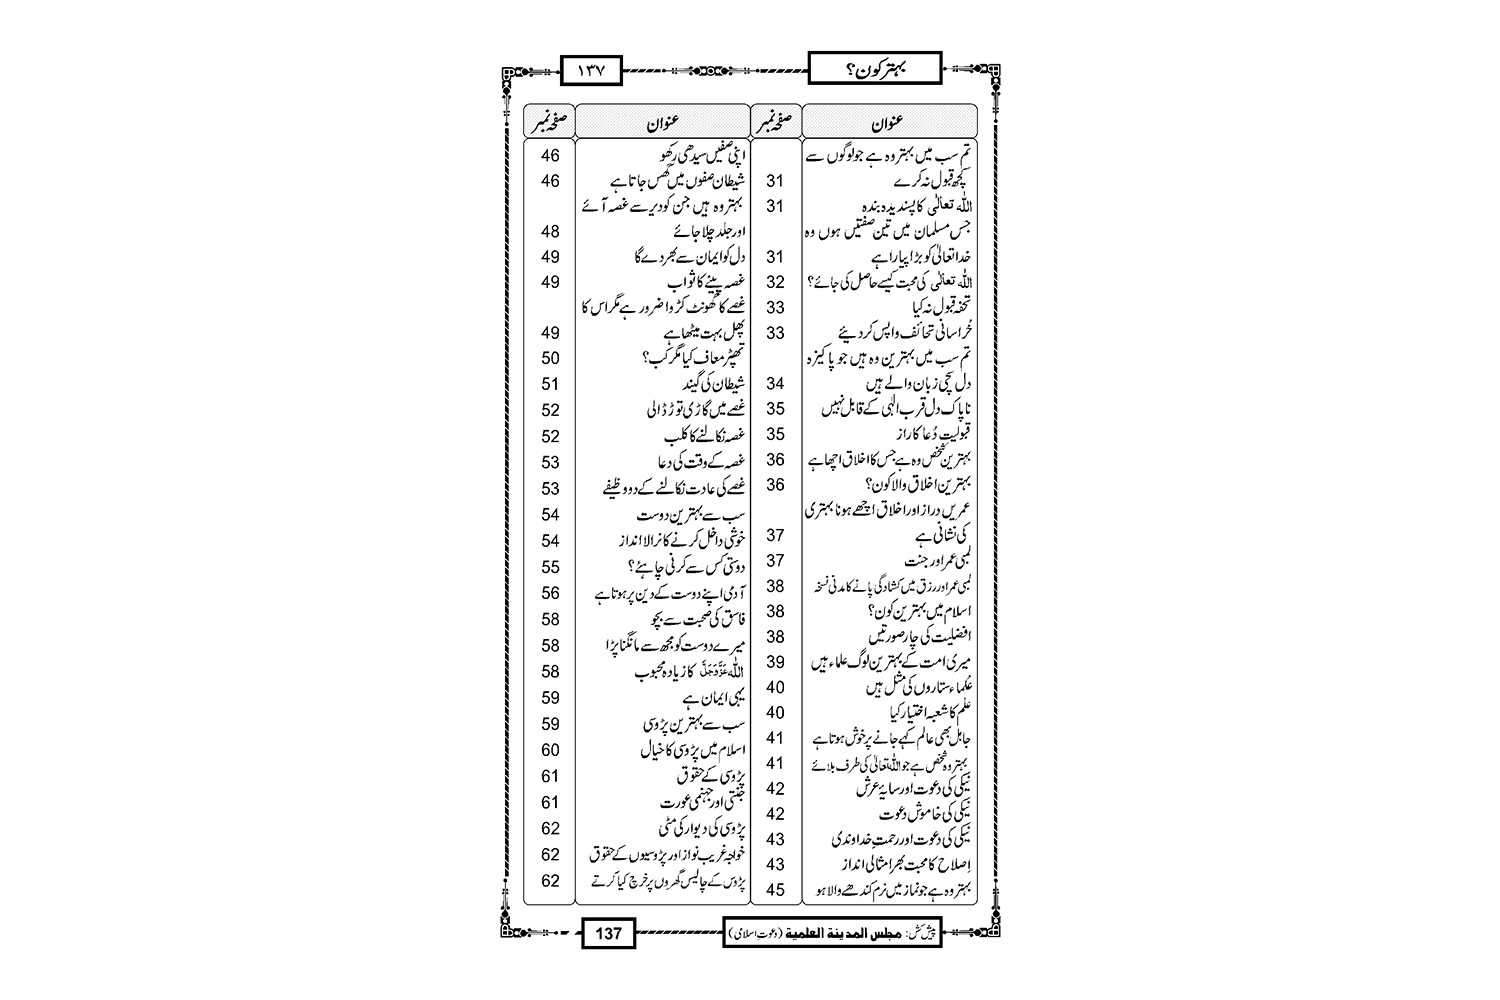 بہتر کون؟
۱۳۷
عنوان صفحہ نمبر
تم سب میں بہتر وہ ہے جو لوگوں سے
کچھ قبول نہ کرے 31
اللہ تعالیٰ کا پسندیدہ بندہ 31
جس مسلمان میں تین صفتیں ہوں وہ
خدا تعالیٰ کو بڑا پیارا ہے 31
اللہ تعالیٰ کی محبت کیسے حاصل کی جائے؟ 32
تحفہ قبول نہ کیا 33
خُراسانی تحائف واپس کر دیئے 33
تم سب میں بہترین وہ ہیں جو پاکیزہ
دل سچی زبان والے ہیں 34
ناپاک دل قرب الٰہی کے قابل نہیں 35
قبولیتِ دُعا کا راز 35
بہترین شخص وہ ہے جس کا اخلاق اچھا ہے 36
بہترین اخلاق والا کون؟ 36
عمریں دراز اور اخلاق اچھے ہونا بہتری
کی نشانی ہے 37
لمبی عمر اور جنت 37
لمبی عمر اور رزق میں کشادگی پانے کا مدنی نسخہ 38
اسلام میں بہترین کون؟ 38
افضلیت کی چار صورتیں 38
میری امت کے بہترین لوگ علماء ہیں 39
عُلماء ستاروں کی مثل ہیں 40
علم کا شعبہ اختیار کیا 40
جاہل بھی عالم کہے جانے پر خوش ہوتا ہے 41
بہتر وہ شخص ہے جو اللہ تعالیٰ کی طرف بلائے 41
نیکی کی دعوت اور سایۂ عرش 42
نیکی کی خاموش دعوت 42
نیکی کی دعوت اور رحمتِ خداوندی 43
اِصلاح کا محبت بھرا مثالی انداز 43
بہتر وہ ہے جو نماز میں نرم کندھے والا ہو 45
عنوان صفحہ نمبر
اپنی صفیں سیدھی رکھو 46
شیطان صفوں میں گھس جاتا ہے 46
بہتر وہ ہیں جن کو دیر سے غصہ آئے
اور جلد چلا جائے 48
دل کو ایمان سے بھر دے گا 49
غصہ پینے کا ثواب 49
غصے کا گھونٹ کڑوا ضرور ہے مگر اس کا
پھل بہت میٹھا ہے 49
تھپڑ معاف کیا مگر کب؟ 50
شیطان کی گیند 51
غصے میں گاڑی توڑ ڈالی 52
غصہ نکالنے کا کلب 52
غصہ کے وقت کی دعا 53
غصے کی عادت نکالنے کے دو وظیفے 53
سب سے بہترین دوست 54
خوشی داخل کرنے کا نرالا انداز 54
دوستی کس سے کرنی چاہئے؟ 55
آدمی اپنے دوست کے دین پر ہوتا ہے 56
فاسق کی صحبت سے بچو 58
میرے دوست کو مجھ سے مانگنا پڑا 58
اللہ عَزَّوَجَلَّ کا زیادہ محبوب 58
یہی ایمان ہے 59
سب سے بہترین پڑوسی 59
اسلام میں پڑوسی کا خیال 60
پڑوسی کے حقوق 61
جنّتی اور جہنمی عورت 61
پڑوسی کی دیوار کی مٹی 62
خواجہ غریب نواز اور پڑوسیوں کے حقوق 62
پڑوس کے چالیس گھروں پر خرچ کیا کرتے 62
پیش کش: مجلس المدینة العلمیة (دعوتِ اسلامی)
137